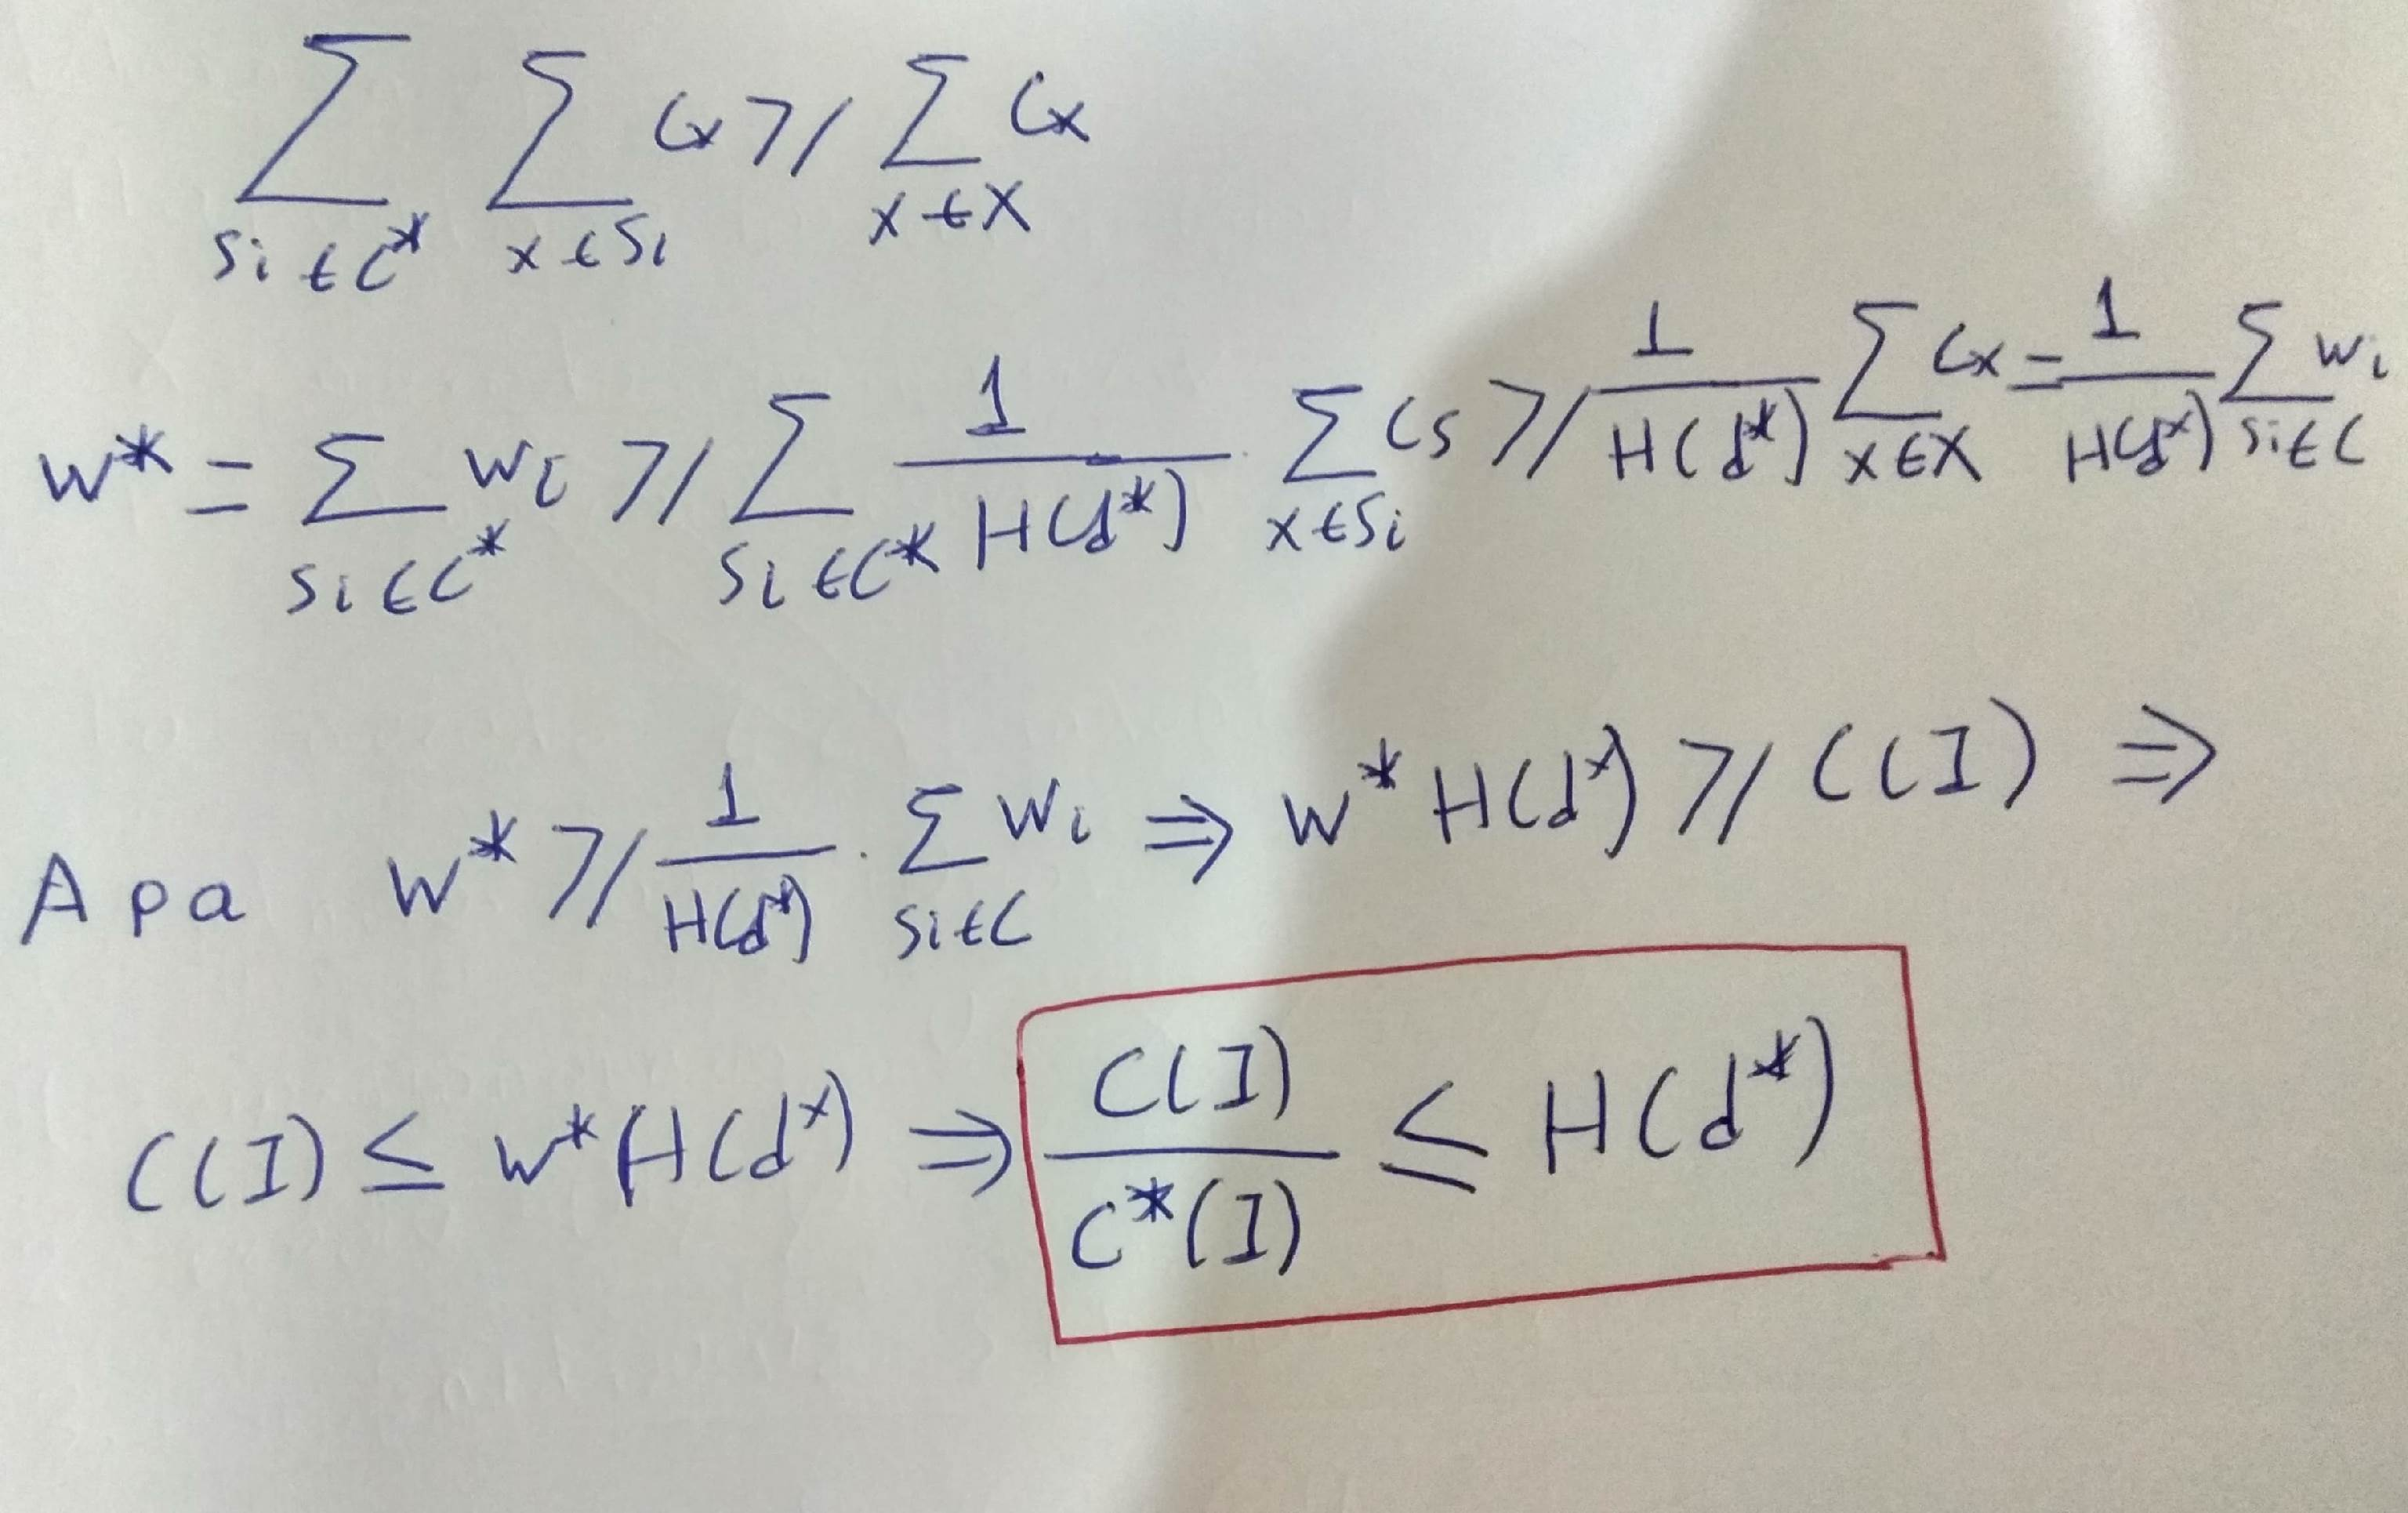 ∑_{Si∈C*} ∑_{x∈Si} Cx ≥ ∑_{x∈X} Cx
W* = ∑_{Si∈C*} Wi ≥ ∑_{Si∈C*} 1/H(d*) · ∑_{x∈Si} Cs ≥ 1/H(d*) ∑_{x∈X} Cx = 1/H(d*) ∑_{Si∈C} Wi
Άρα W* ≥ 1/H(d*) · ∑_{Si∈C} Wi ⇒ W* H(d*) ≥ C(I) ⇒
C(I) ≤ W* H(d*) ⇒ C(I)/C*(I) ≤ H(d*)